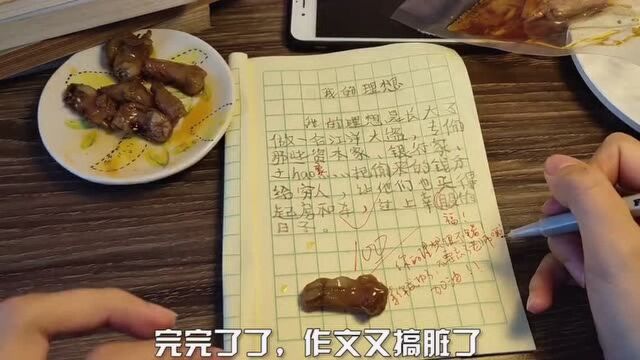 我的理想
我的理想是长大了
做一名江洋大盗，去偷
那些资本家、银行家、
土hao...把偷来的钱分
给穷人，让他们也买得
起房和车，过上幸的
日子。
福！
100
你的理想很不错
加油!!
完完了了，作文又搞脏了